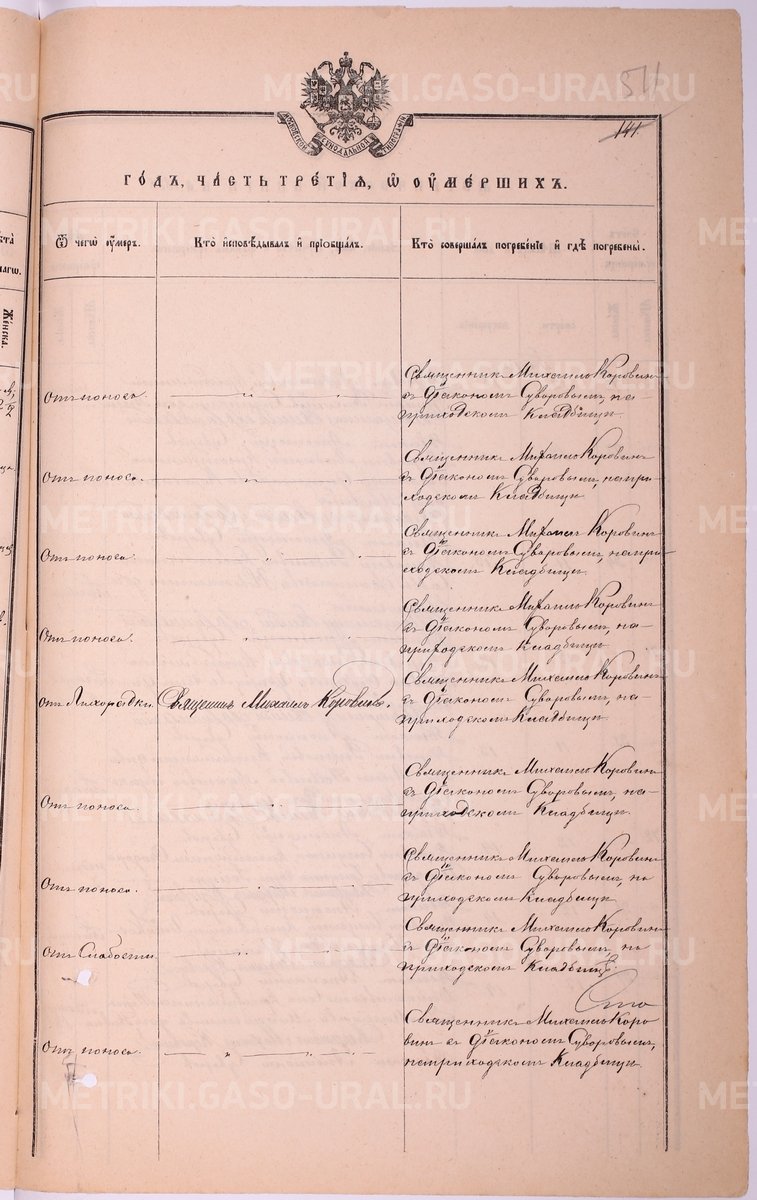 511
141
МОСКОВСКОЙ СѴНОДАЛЬНОЙ ТИПОГРАФІИ
ГОДЪ, ЧАСТЬ ТРЕТІЯ, Ѿ ОУМЕРШИХЪ.
Ѿ чегѡ оумеръ.
Кто исповѣдывалъ и пріобщалъ.
Кто совершалъ погребеніе и гдѣ погребены.
Женска.
Отъ поноса.
Священникъ Михаилъ Коровинъ
съ Діакономъ Суворовымъ, на
приходскомъ Кладбищѣ.
Отъ поноса.
Священникъ Михаилъ Коровинъ
съ Діакономъ Суворовымъ, на при-
ходскомъ Кладбищѣ.
Отъ поноса.
Священникъ Михаилъ Коровинъ
съ Діакономъ Суворовымъ, на при-
ходскомъ Кладбищѣ.
Отъ поноса.
Священникъ Михаилъ Коровинъ
съ Діакономъ Суворовымъ, на-
приходскомъ Кладбищѣ
Отъ Лихорадки.
Священникъ Михаилъ Коровинъ.
Священникъ Михаилъ Коровинъ
съ Діакономъ Суворовымъ, на-
приходскомъ Кладбищѣ.
Отъ поноса.
Священникъ Михаилъ Коровинъ
съ Діакономъ Суворовымъ, на-
приходскомъ Кладбищѣ.
Отъ поноса.
Священникъ Михаилъ Коровинъ
съ Діакономъ Суворовымъ, на
приходскомъ Кладбищѣ.
Отъ Слабости
Священникъ Михаилъ Коровинъ
съ Діакономъ Суворовымъ, на
приходскомъ Кладбищѣ.
Отъ поноса.
Священникъ Михаилъ Коро-
винъ съ Діакономъ Суворовымъ,
на приходскомъ Кладбищѣ.
METRIKI.GASO-URAL.RU